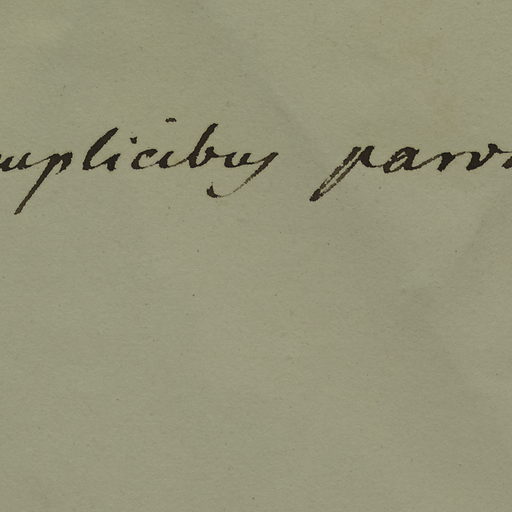 uplicibus parv